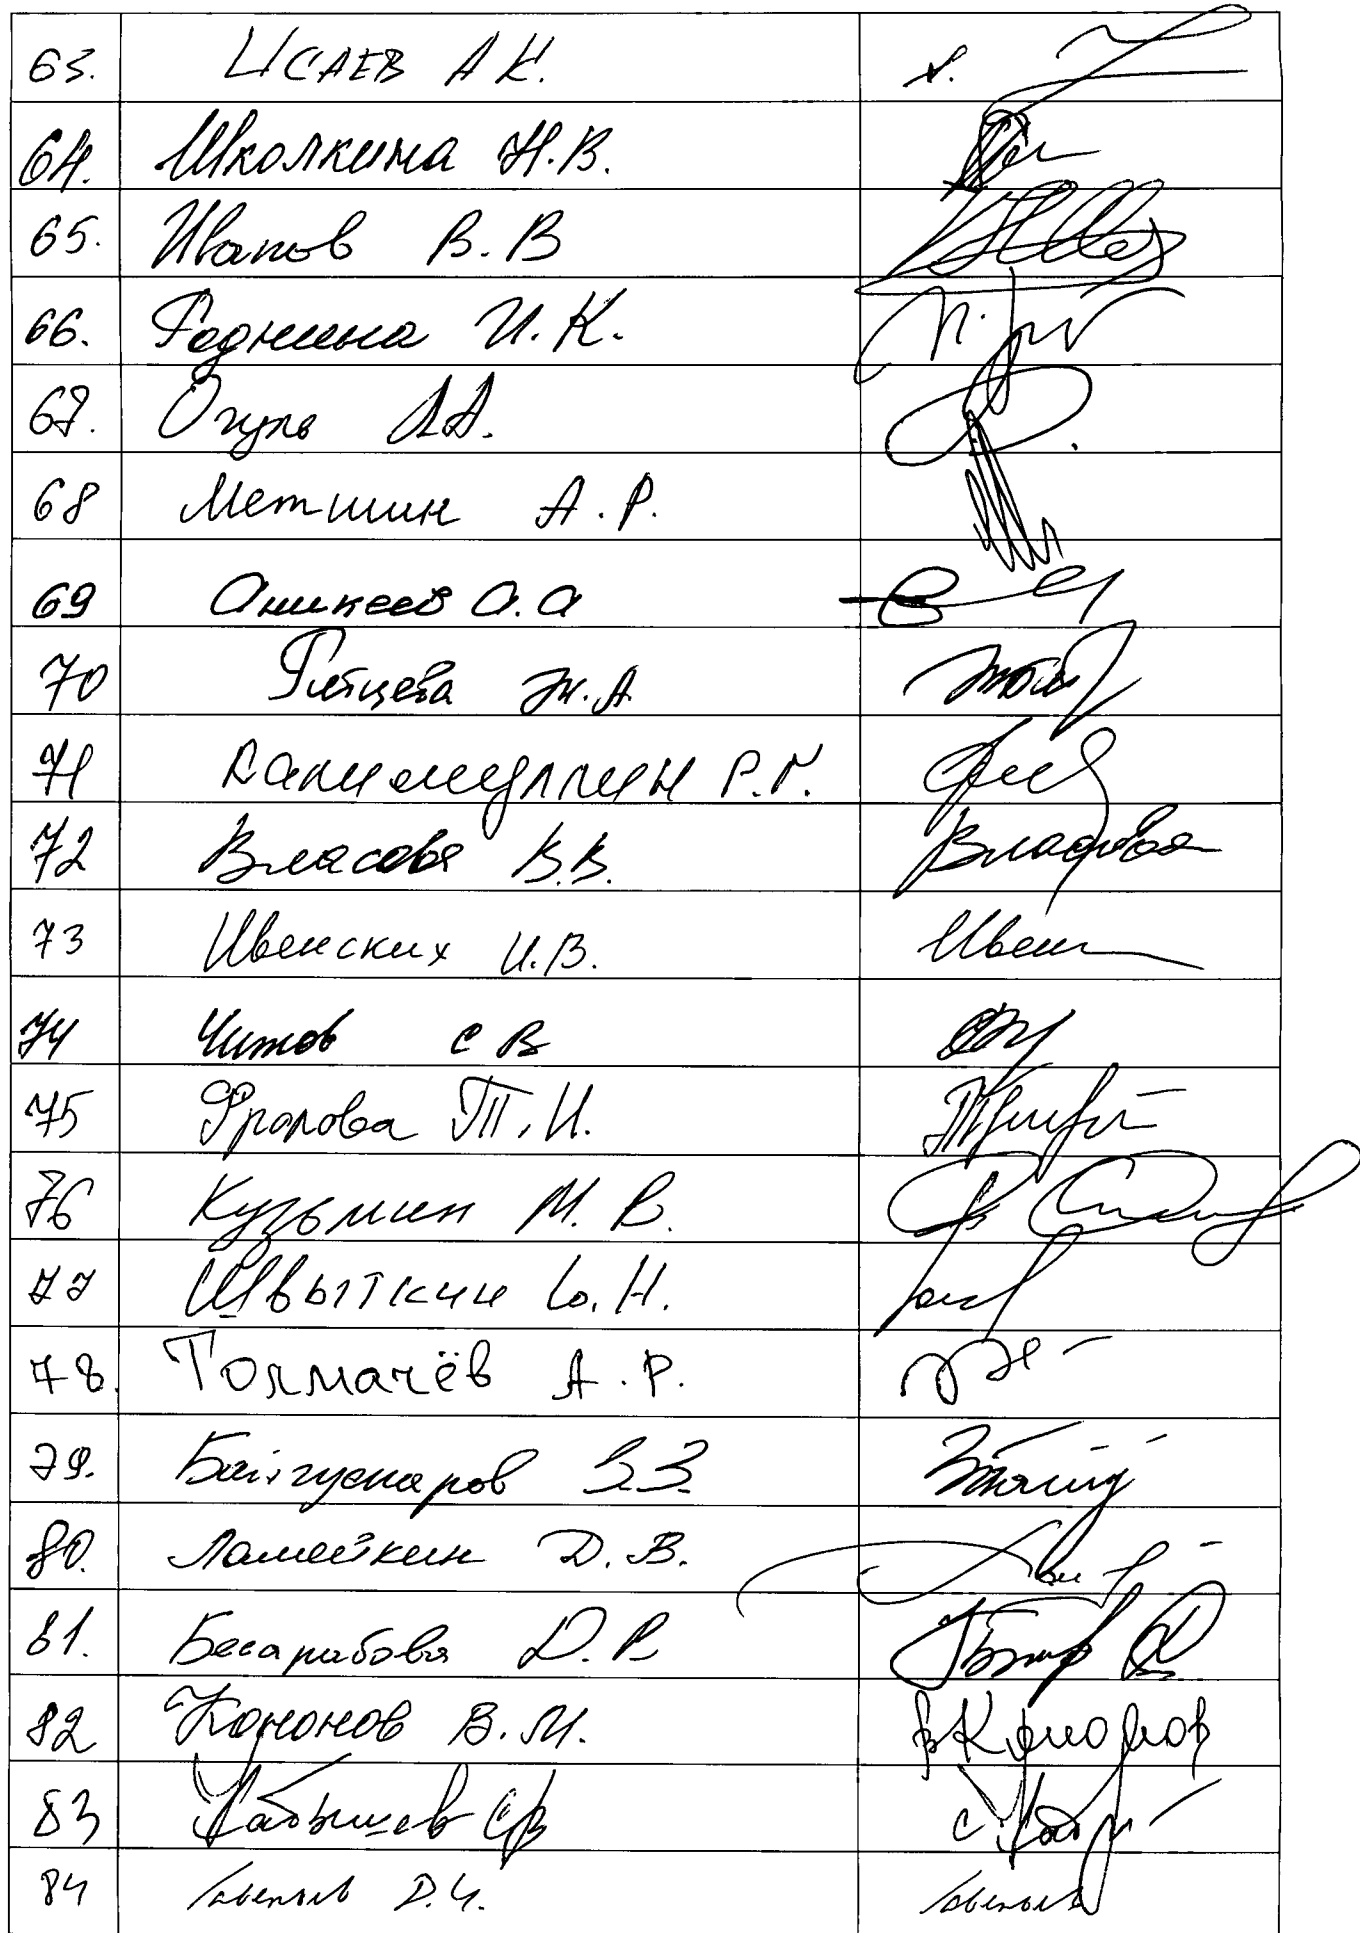 63. ИСАЕВ А К.
64. Школкина Н.В.
65. Иванов В.В
66. Роднина И.К.
67. Огуль Л.А.
68 Метшин А.Р.
69 Аникеев А.А
70 Рябцева Ж.А
71 Хамитуллин Р.Г.
72 Власова В.В. Власова
73 Ивенских И.В. Ивен
74 Чижов С В
75 Фролова Т.И.
76 Кузьмин М.В.
77 Швыткин Ю.Н.
78. Толмачёв А.Р.
79. Байгускаров З.З.
80. Ламейкин Д.В.
81. Бесарабова Д.Р.
82 Кононов В.М. В Кононов
83 Кабышев С В
84 Д.И.